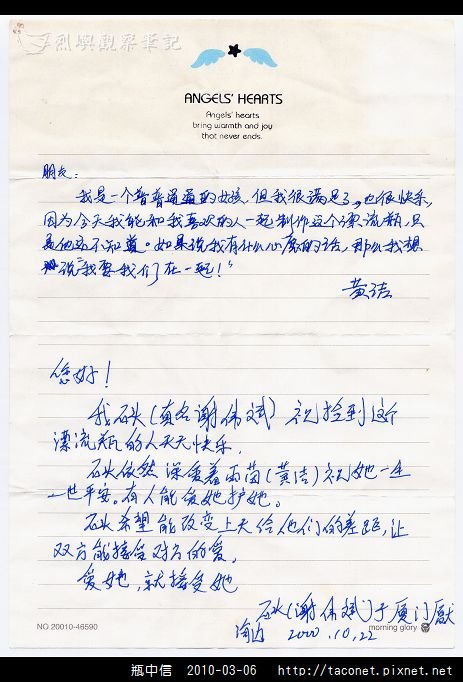 烈嶼觀察筆記
ANGELS' HEARTS
Angels' hearts
bring warmth and joy
that never ends.
朋友：
我是一个普普通通的女孩，但我很满足了，也很快乐，
因为今天我能和我喜欢的人一起制作这个漂流瓶，只
是他还不知道。如果说我有什么心愿的话，那么我想
说"我要我们在一起！"
黄洁
您好！
我石头(真名谢伟斌)祝捡到这个
漂流瓶的人天天快乐.
石头依然深爱着雨茵(黄洁)祝她一生
一世平安。有人能爱她护她。
石头希望能改变上天给他们的差距，让
双方能接受对方的爱.
爱她，就接受她
石头(谢伟斌)于厦门
2000.10.22
NO.20010-46590
morning glory
瓶中信 2010-03-06 http://taconet.pixnet.net